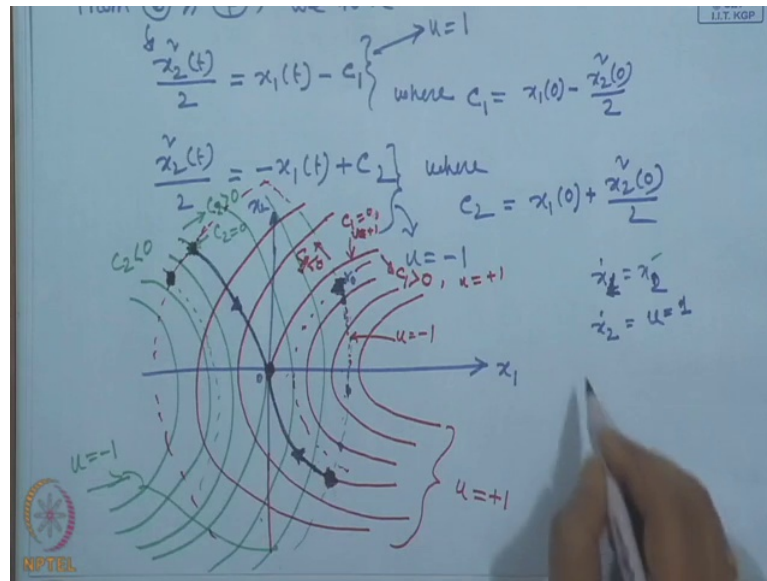 I.I.T. KGP
we
x₂²(t)/2 = x₁(t) - C₁ } u = 1
where C₁ = x₁(0) - x₂²(0)/2
x₂²(t)/2 = -x₁(t) + C₂ } where
C₂ = x₁(0) + x₂²(0)/2
u = -1
C₂>0
C₂=0
C₂<0
x₂
C₁=0,
u=+1
C₁<0
C₁>0, u=+1
x₀
u=-1
ẋ₁ = x₂
ẋ₂ = u = 1
0
x₁
u=-1
u=+1
NPTEL